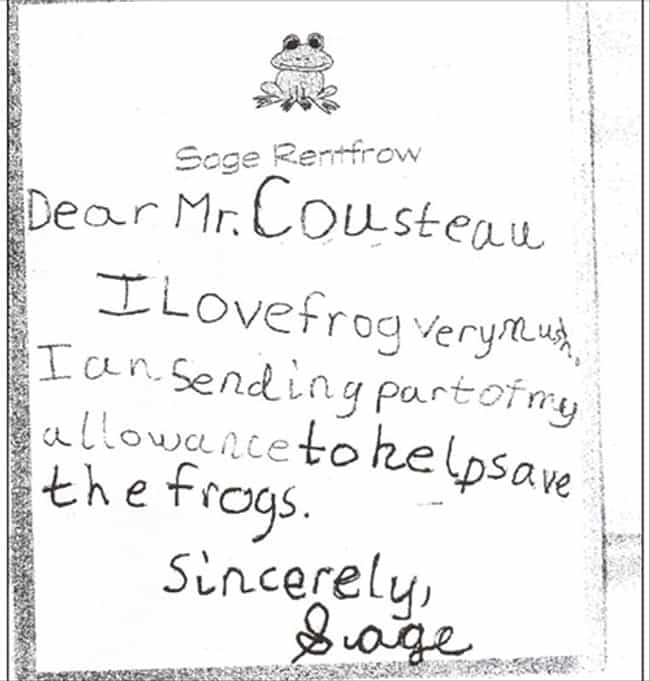 Sage Rentfrow
Dear Mr. Cousteau
I Love frog very mush.
I an sending part of my
allowance to help save
the frogs.
Sincerely,
Sage